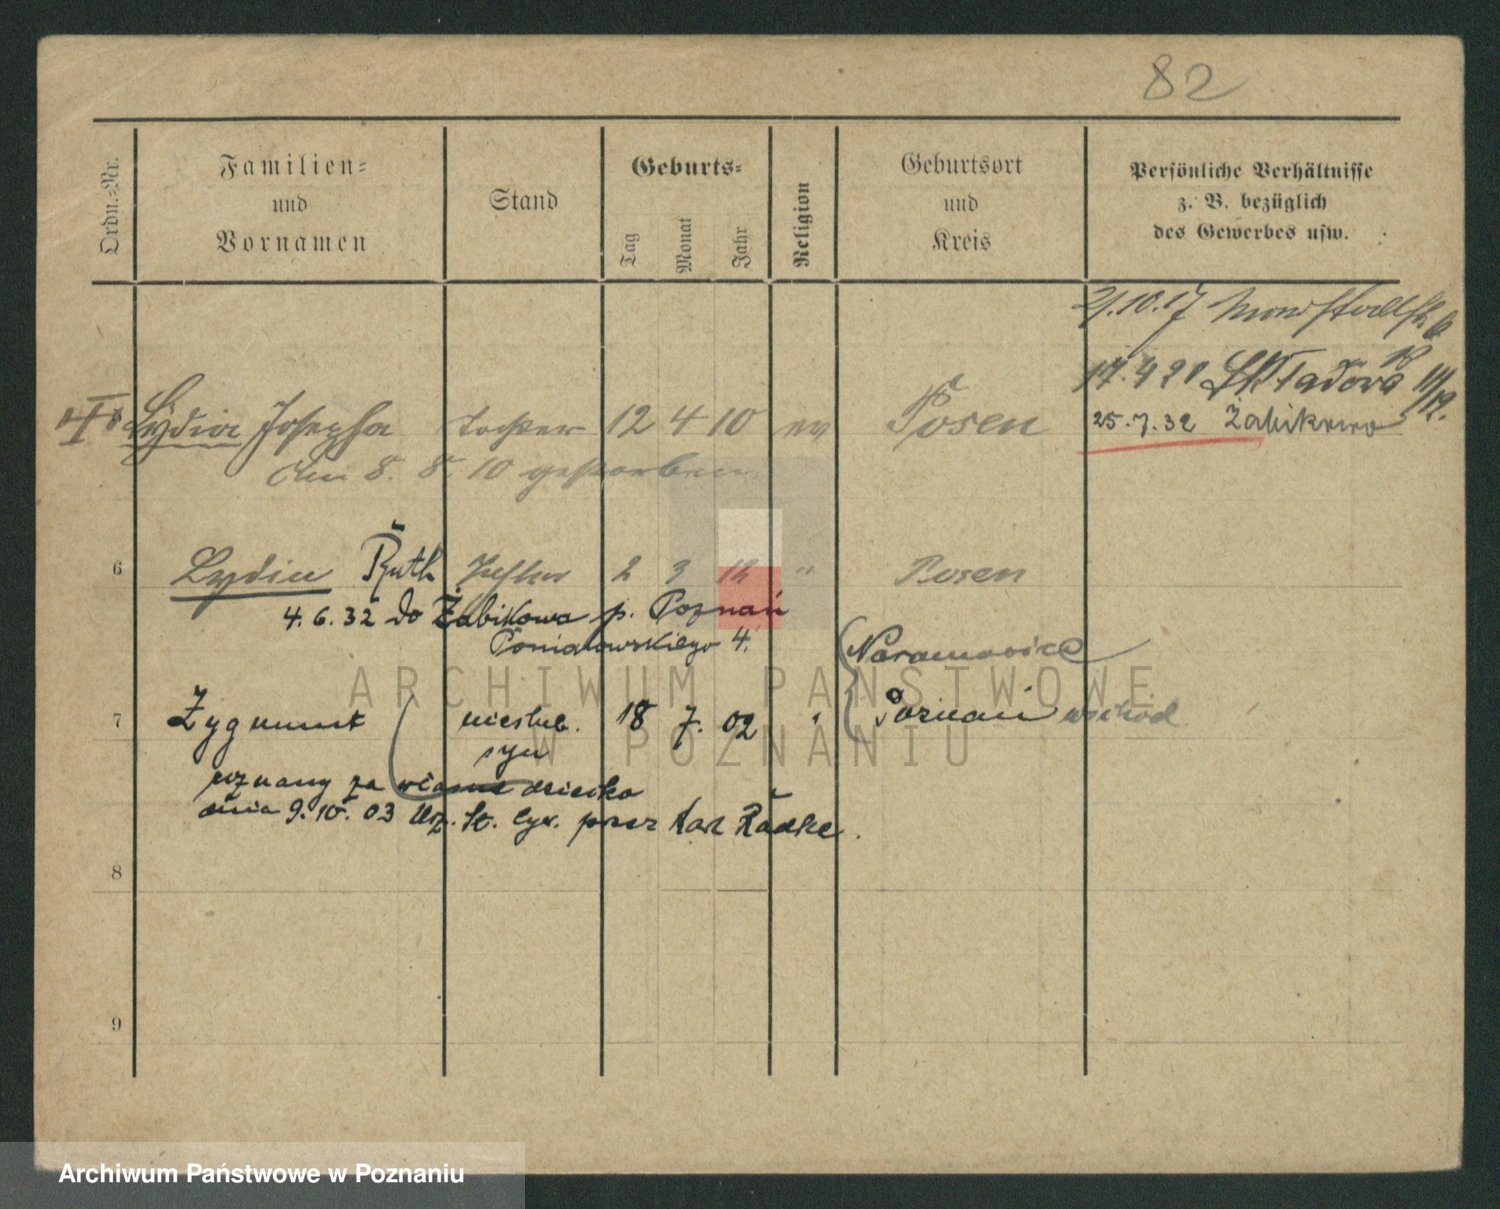 82
Ordn.-Nr.
Familien-
und
Vornamen
Stand
Geburts-
Tag
Monat
Jahr
Religion
Geburtsort
und
Kreis
Persönliche Verhältnisse
z. B. bezüglich
des Gewerbes usw.
21.10.17
17.4.21
25.7.32 Żabikowo
Lydia Josepha Tochter 12 4 10 ev Posen
den 8. 8. 10 gestorben
6 Lydia Ruth Tochter 2 3 12 " Posen
4.6.32 do Żabikowa p. Poznań
Poniatowskiego 4.
Naramowice
7 Zygmunt nieślub. 18 7. 02 " Poznań wschód
syn
uznany za własne dziecko
dnia 9.10.03 Urz. St. Cyw. przez Karl Radke.
8
9
ARCHIWUM PAŃSTWOWE
W POZNANIU
Archiwum Państwowe w Poznaniu